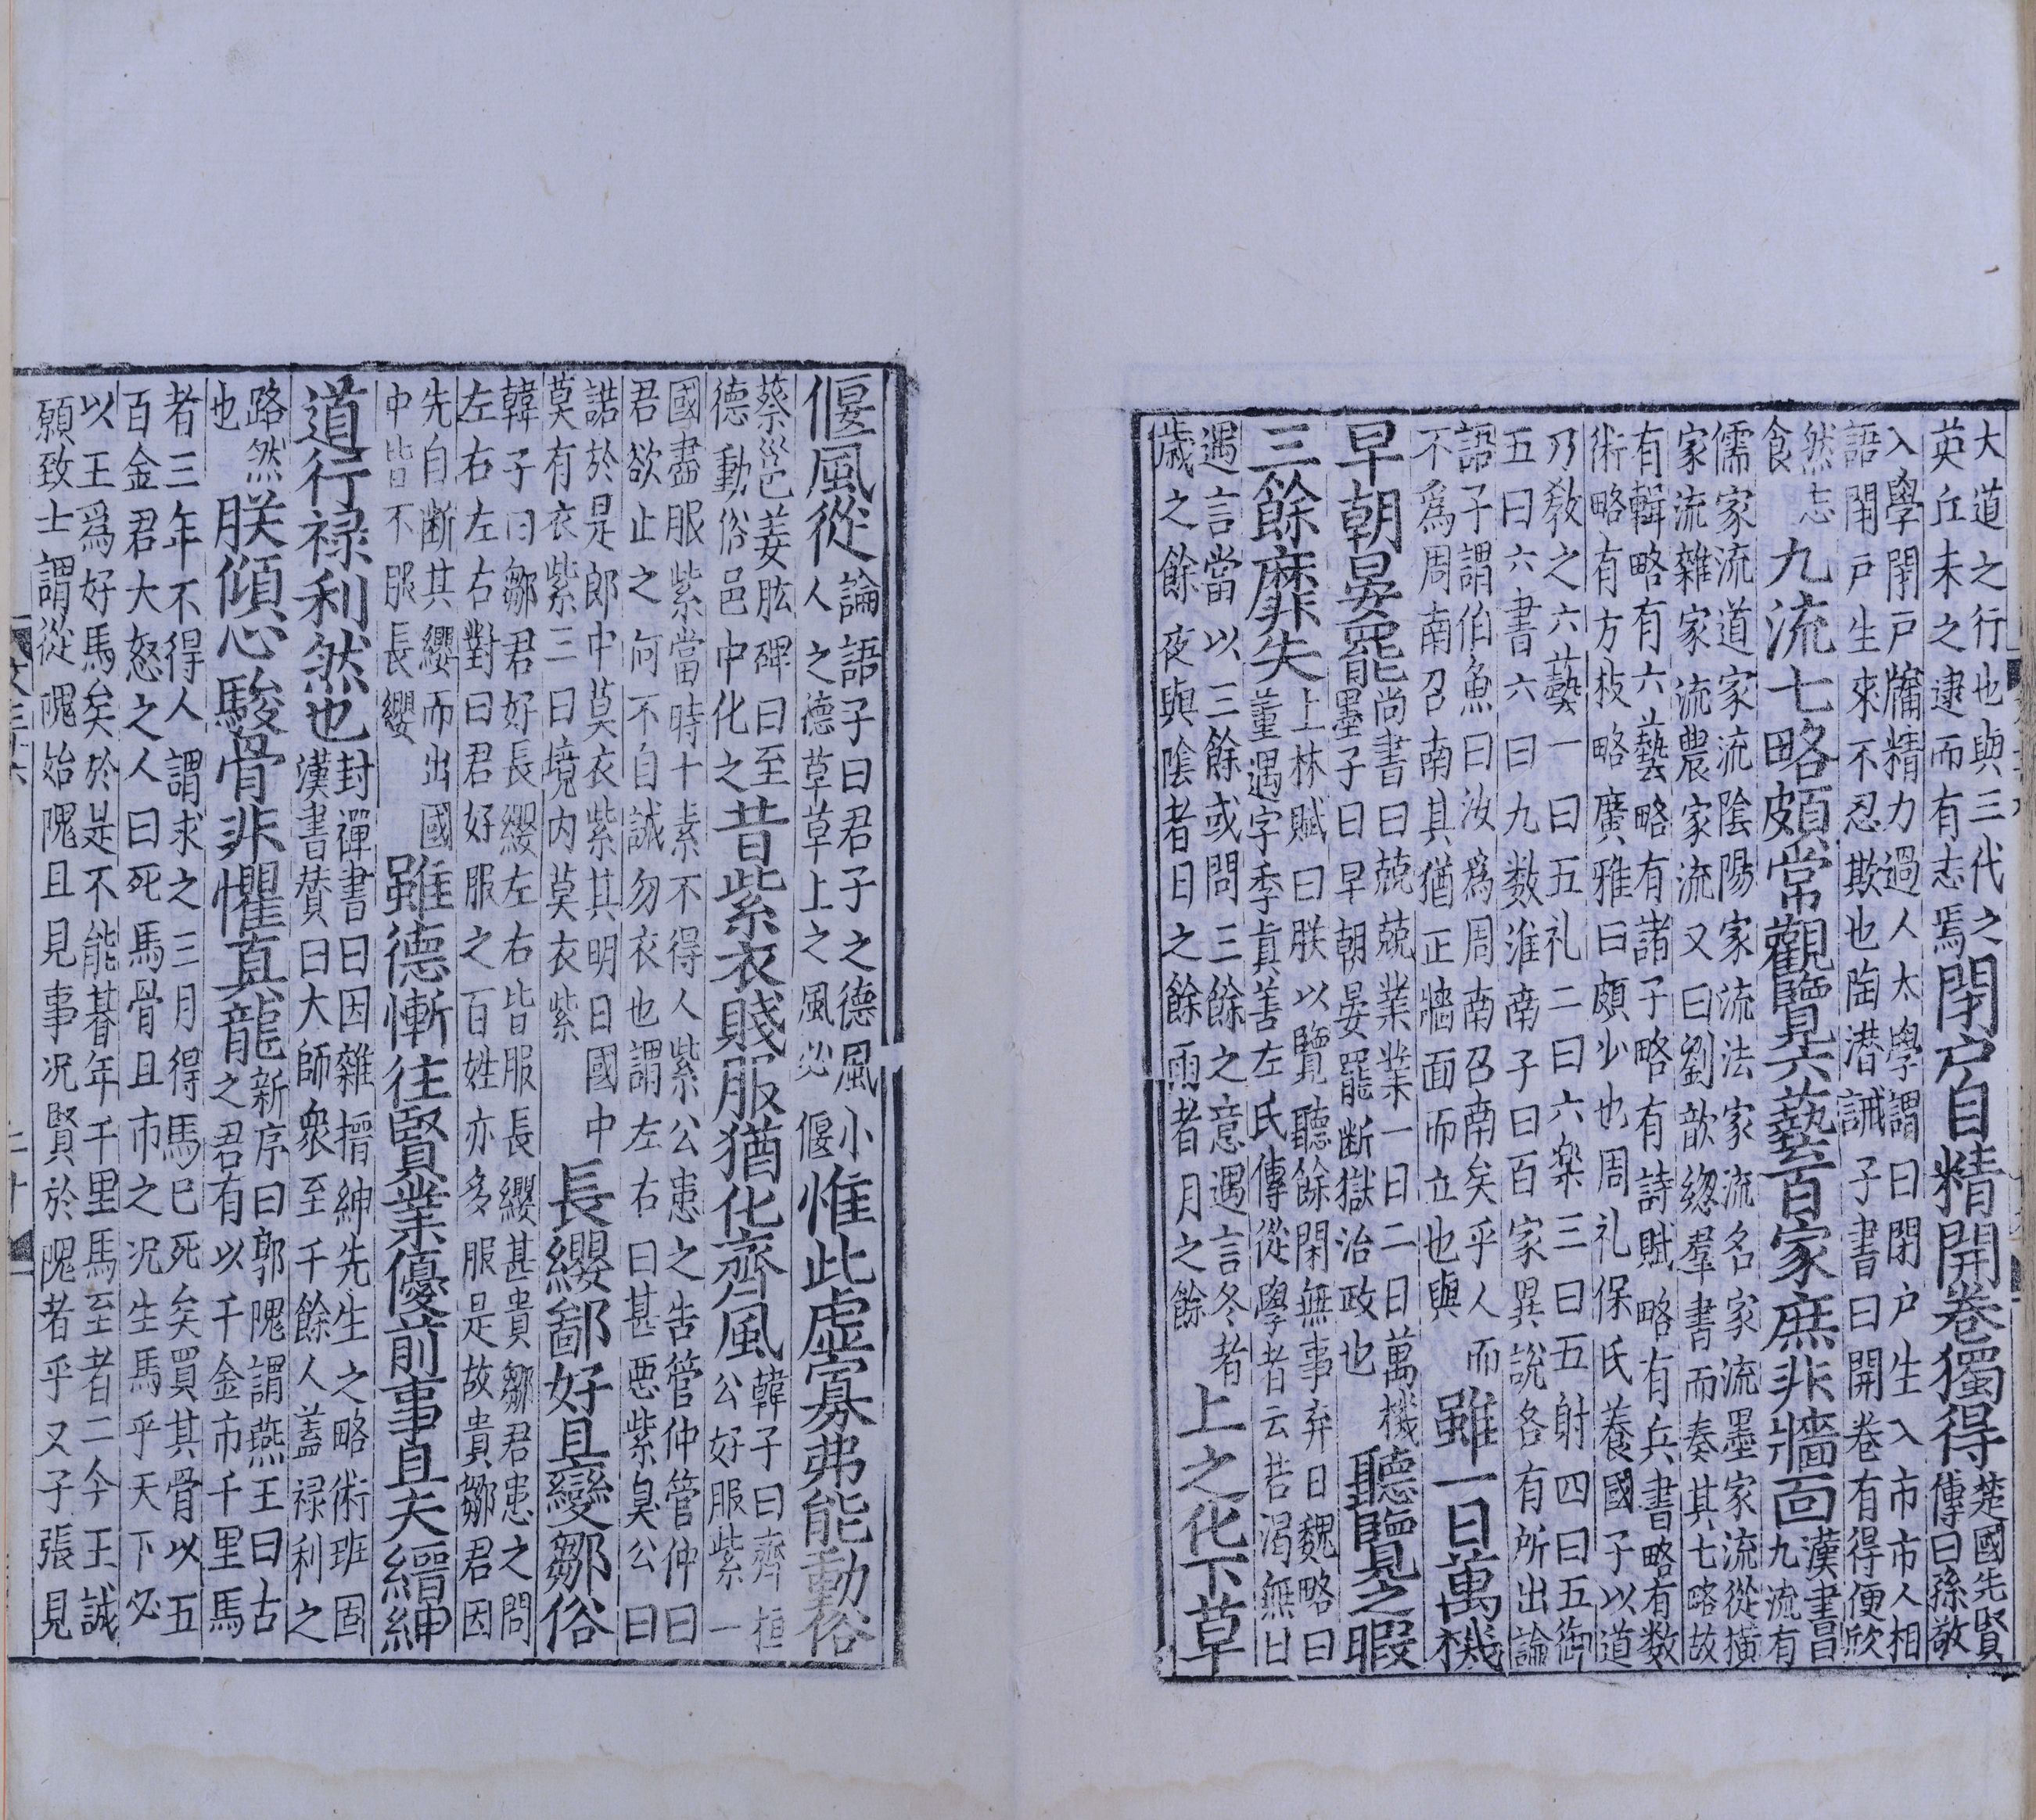 大道之行也與三代之
英丘未之逮而有志焉閉戶自精開卷獨得楚國先賢
傳曰孫敬
入學閉戶牖精力過人太學謂曰閉户生入市市人相
語閉戸生來不忍欺也陶潜誡子書曰開卷有得便欣
然忘
食九流七略頗常觀覽六藝百家庶非牆面漢書曰
九流有
儒家流道家流陰陽家流法家流名家流墨家流從横
家流雜家流農家流又曰劉歆緫羣書而奏其七略故
有輯略有六藝略有諸子略有詩賦略有兵書略有数
術略有方技略廣雅曰頗少也周礼保氏養國子以道
乃敎之六藝一曰五礼二曰六樂三曰五射四曰五御
五曰六書六曰九数淮南子曰百家異說各有所出論
語子謂伯魚曰汝爲周南召南矣乎人而
不爲周南召南其猶正牆面而立也與雖一日萬機
早朝晏罷尚書曰兢兢業業一日二日萬機
墨子曰早朝晏罷斷獄治政也聽覽之暇
三餘靡失上林賦曰朕以覽聽餘閑無事弃日魏略曰
董遇字季真善左氏傳從學者云苦渴無日
遇言當以三餘或問三餘之意遇言冬者
歳之餘夜與隂者日之餘雨者月之餘上之化下草
偃風從論語子曰君子之德風小
人之德草草上之風必偃惟此虛寡弗能動俗
蔡邕姜肱碑曰至
德動俗邑中化之昔紫衣賤服猶化齊風韓子曰齊桓
公好服紫一
國盡服紫當時十素不得人紫公患之告管仲管仲曰
君欲止之何不自誠勿衣也謂左右曰甚惡紫臭公曰
諾於是郎中莫衣紫其明日國中
莫有衣紫三日境内莫衣紫長纓鄙好且變鄒俗
韓子曰鄒君好長纓左右皆服長纓甚貴鄒君患之問
左右左右對曰君好服之百姓亦多服是故貴鄒君因
先自断其纓而出國
中皆不服長纓雖德慚往賢業優前事且夫縉紳
道行祿利然也封禪書曰因雜搢紳先生之略術班固
漢書賛曰大師衆至千餘人蓋禄利之
路然
也朕傾心駿骨非懼真龍新序曰郭隗謂燕王曰古
之君有以千金市千里馬
者三年不得人謂求之三月得馬巳死矣買其骨以五
百金君大怒之人曰死馬骨且市之况生馬乎天下必
以王爲好馬矣於是不能朞年千里馬至者二今王誠
願致士謂從隗始隗且見事况賢於隗者乎又子張見